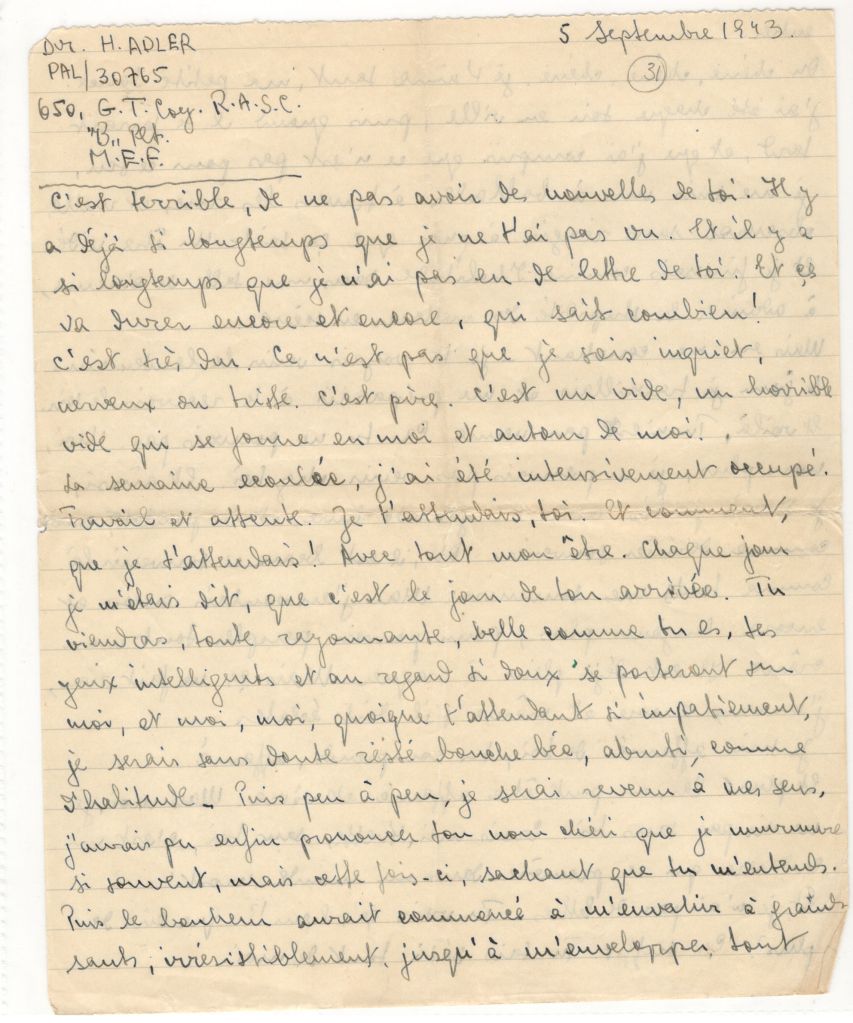 Dvr. H. ADLER
5 Septembre 1943.
PAL/30765
(31)
650, G.T. Coy. R.A.S.C.
"B" Plt.
M.E.F.
C'est terrible, de ne pas avoir des nouvelles de toi. Il y
a déjà si longtemps que je ne t'ai pas vu. Et il y a
si longtemps que je n'ai pas eu de lettre de toi. Et ça
va durer encore et encore, qui sait combien!
C'est très dur. Ce n'est pas que je sois inquiet,
nerveux ou triste. C'est pire. C'est un vide, un horrible
vide qui se forme en moi et autour de moi.
La semaine ecoulée, j'ai été intensivement occupé.
Travail et attente. Je t'attendais, toi. Et comment,
que je t'attendais! Avec tout mon être. Chaque jour
je m'étais dit, que c'est le jour de ton arrivée. Tu
viendras, toute rayonnante, belle comme tu es, tes
yeux intelligents et au regard si doux se porteront sur
moi, et moi, moi, quoique t'attendant si impatiement,
je serais sans doute résté bouche bée, abruti, comme
d'habitude. Puis peu à peu, je serai revenu à mes sens,
j'aurais pu enfin prononcer ton nom chéri que je murmure
si souvent, mais cette fois-ci, sachant que tu m'entends.
Puis le bonheur aurait commencé à m'envahir à grands
sauts, irrésistiblement, jusqu'à m'envelopper tout